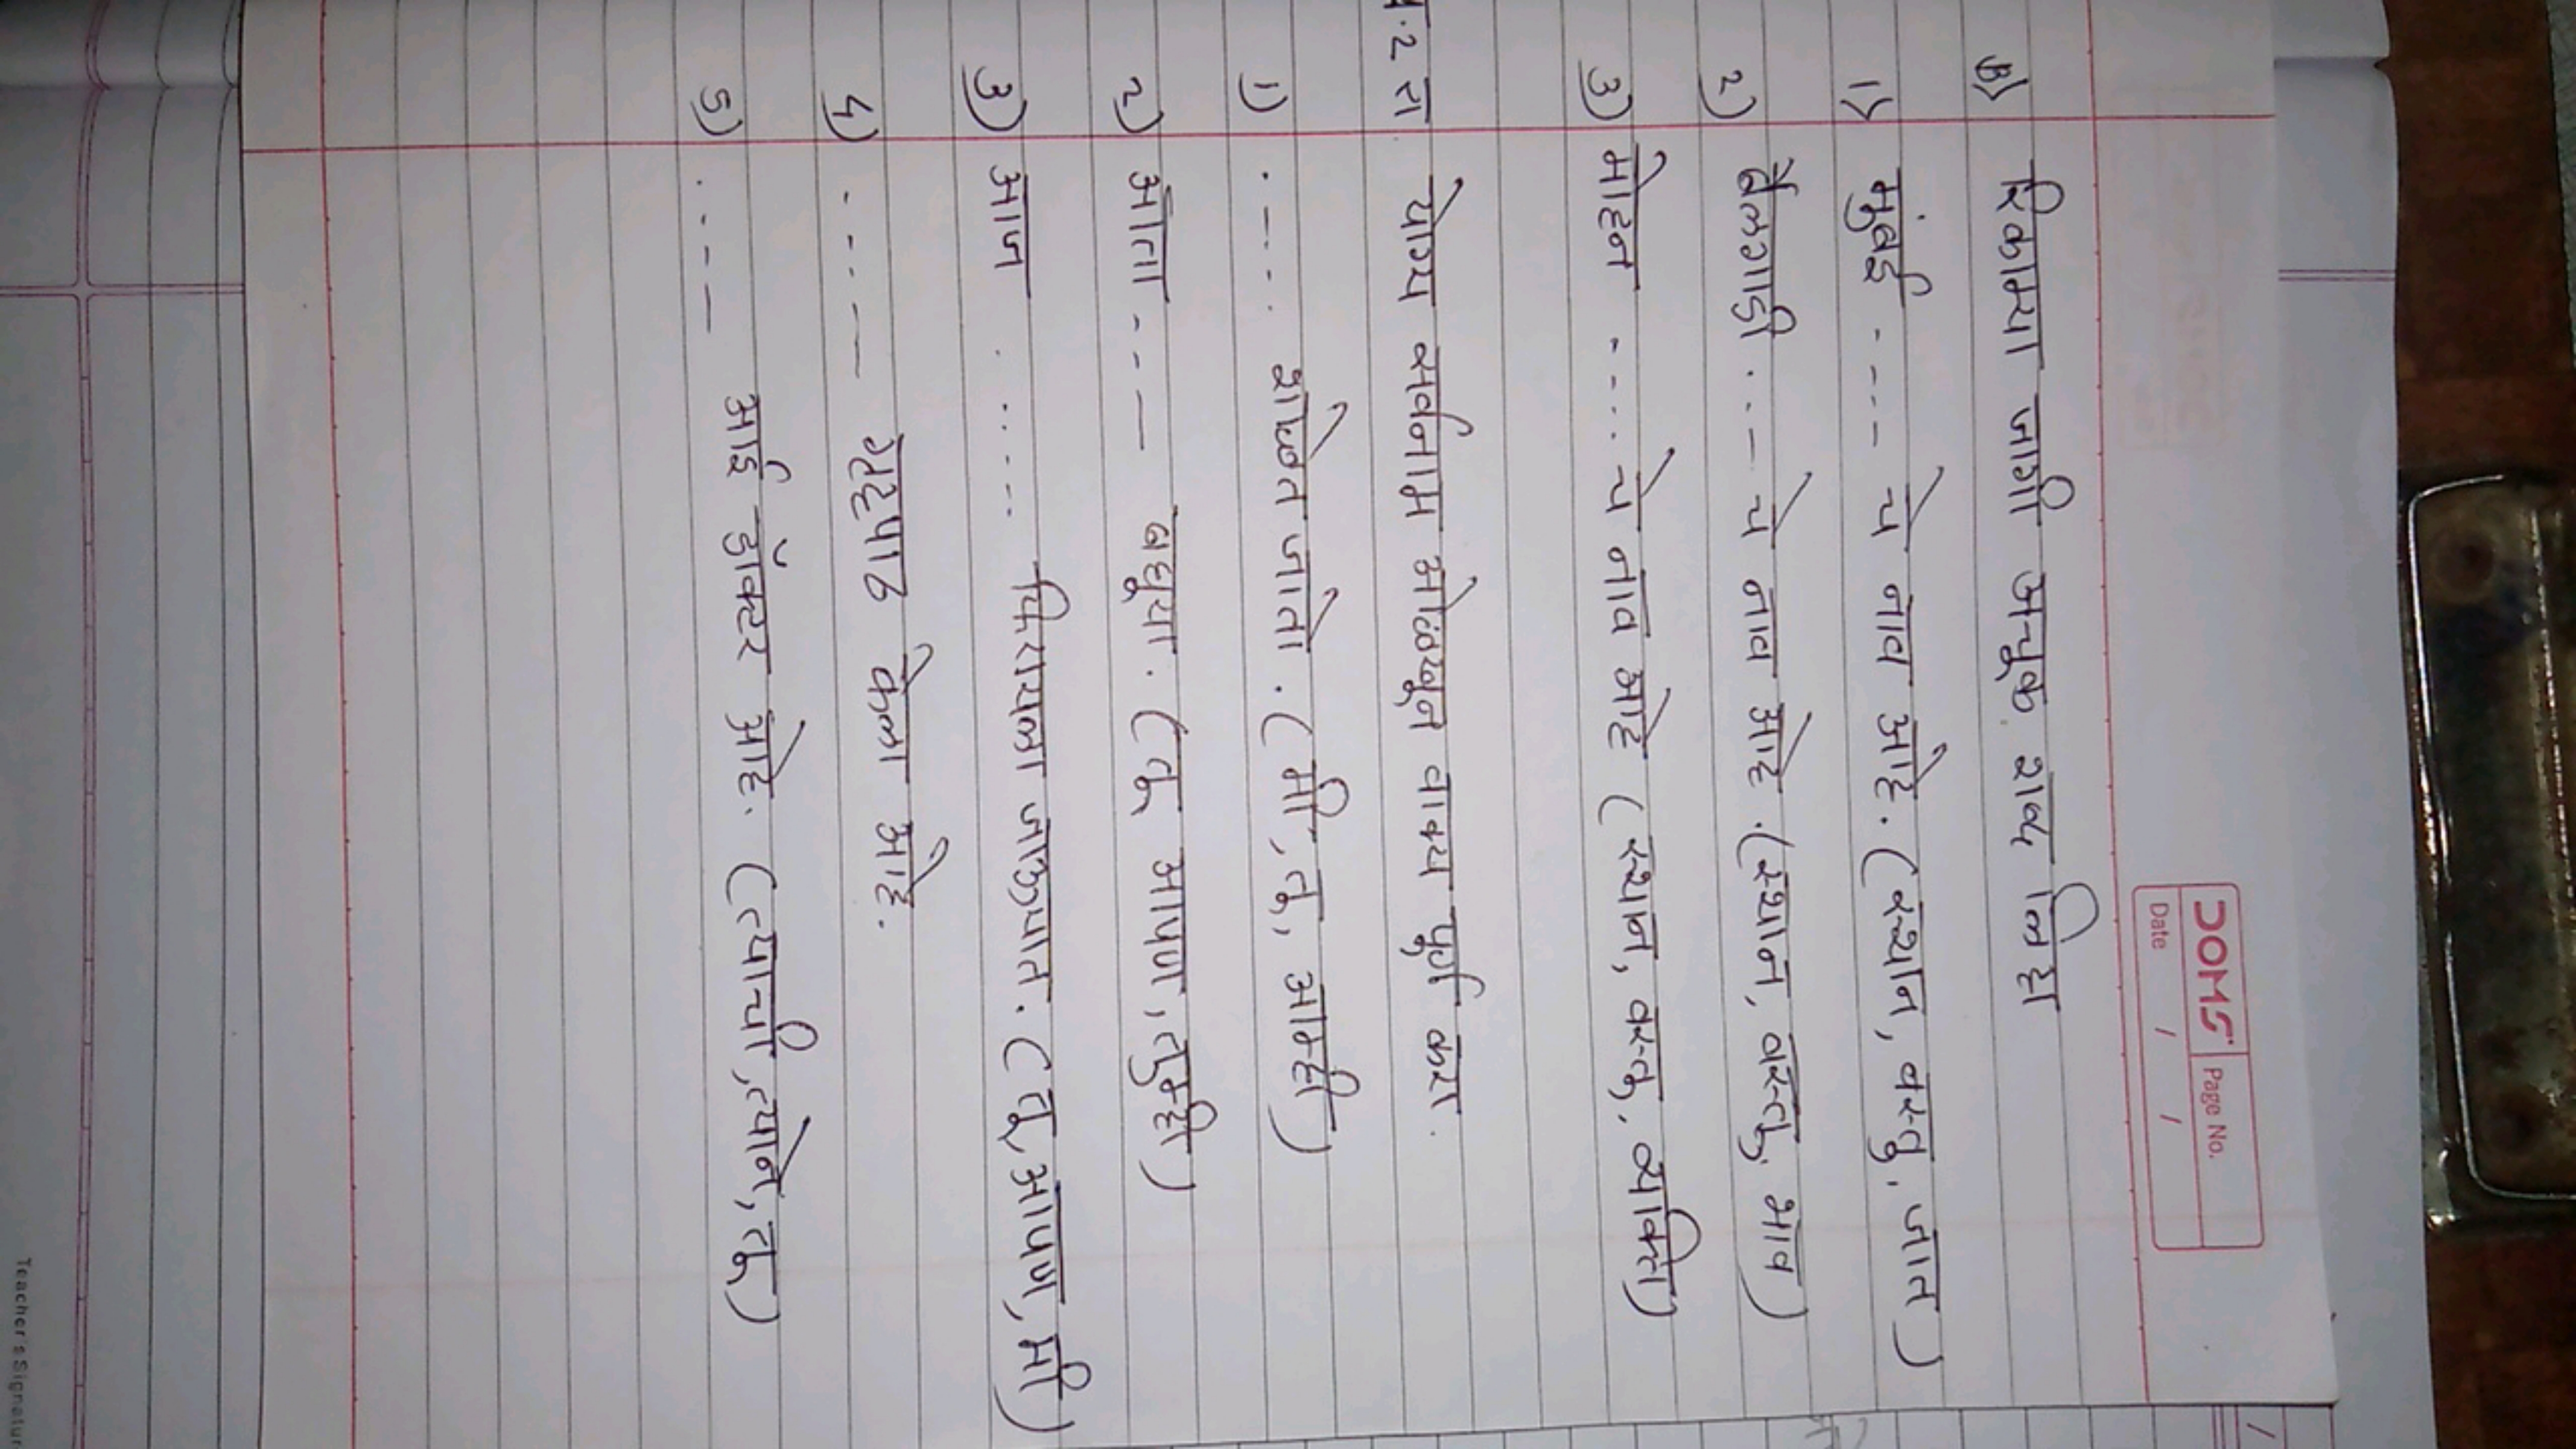 DOMS Page No.
Date / /
B) रिकाम्या जागी अचूक शब्द लिहा
1) मुंबई ..--- चे नाव आहे. (स्थान, वस्तु, जात)
2) बैलगाडी ..-- चे नाव आहे. (स्थान, वस्तु, भाव)
3) मोहन -.... चे नाव आहे (स्थान, वस्तु, व्यक्ति)
प्र.2 रा योग्य सर्वनाम ओळखून वाक्य पूर्ण करा.
1) .--.. शाळेत जातो. (मी, तू, आम्ही)
2) आता ---— बघूया. (तू आपण, तुम्ही)
3) आज ......-- फिरायला जाऊयात. (तू, आपण, मी)
4) --..-— गृहपाठ केला आहे.
5) ..-— आई डॉक्टर आहे. (त्याची, त्याने, तू)
Teacher's Signatur